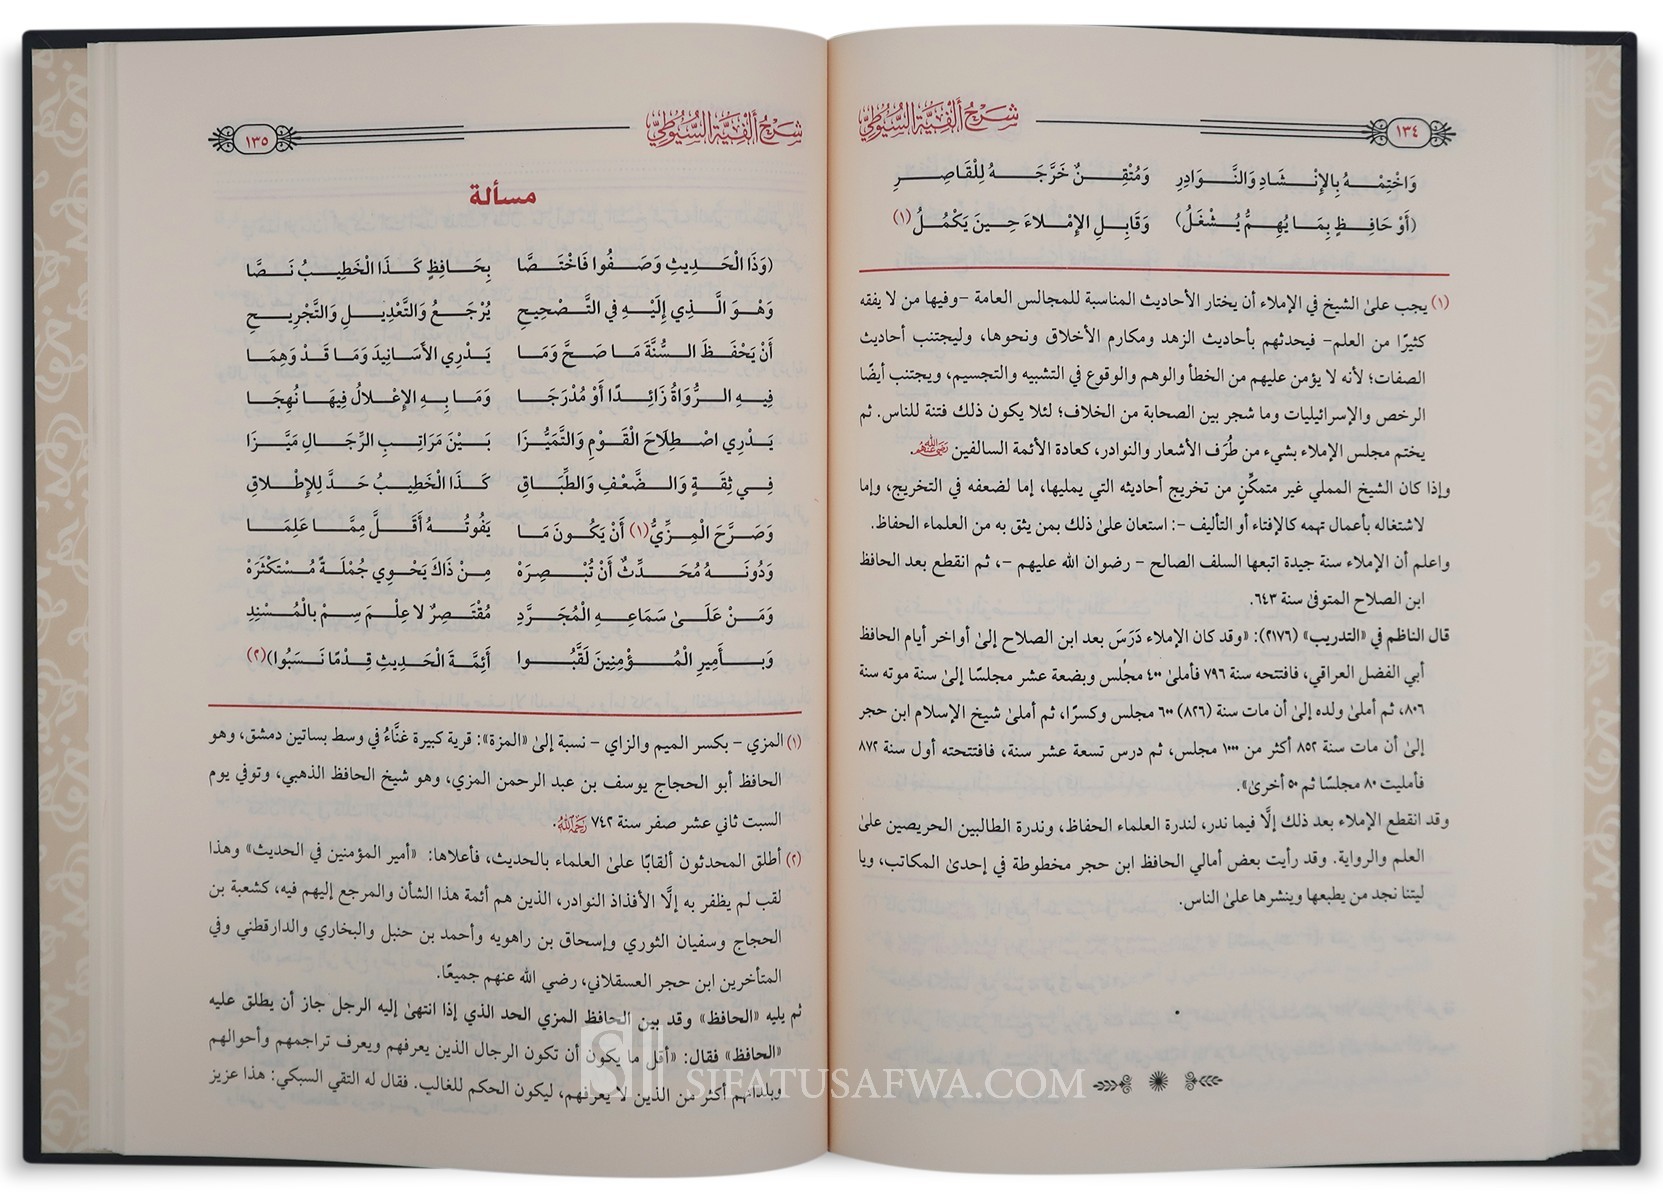 شَرْحُ أَلْفِيَّةِ السُّيُوطِيِّ ١٣٤
وَاخْتِمْهُ بِالإِنْشَادِ وَالنَّوَادِرِ وَمُتْقِنٌ خَرَّجَهُ لِلْقَاصِرِ
(أَوْ حَافِظٍ بِمَا يُهِمُّ يُشْغَلُ) وَقَابِلِ الإِمْلَاءَ حِينَ يَكْمُلُ (١)
(١) يجب علىٰ الشيخ في الإملاء أن يختار الأحاديث المناسبة للمجالس العامة -وفيها من لا يفقه
كثيرًا من العلم- فيحدثهم بأحاديث الزهد ومكارم الأخلاق ونحوها، وليجتنب أحاديث
الصفات؛ لأنه لا يؤمن عليهم من الخطأ والوهم والوقوع في التشبيه والتجسيم، ويجتنب أيضًا
الرخص والإسرائيليات وما شجر بين الصحابة من الخلاف؛ لئلا يكون ذلك فتنة للناس. ثم
يختم مجلس الإملاء بشيء من طُرَف الأشعار والنوادر، كعادة الأئمة السالفين رضي الله عنهم.
وإذا كان الشيخ المملي غير متمكِّنٍ من تخريج أحاديثه التي يمليها، إما لضعفه في التخريج، وإما
لاشتغاله بأعمال تهمه كالإفتاء أو التأليف -: استعان علىٰ ذلك بمن يثق به من العلماء الحفاظ.
واعلم أن الإملاء سنة جيدة اتبعها السلف الصالح - رضوان الله عليهم -، ثم انقطع بعد الحافظ
ابن الصلاح المتوفىٰ سنة ٦٤٣.
قال الناظم في «التدريب» (٢١٧٦): «وقد كان الإملاء دَرَسَ بعد ابن الصلاح إلىٰ أواخر أيام الحافظ
أبي الفضل العراقي، فافتتحه سنة ٧٩٦ فأملىٰ ٤٠٠ مجلس وبضعة عشر مجلسًا إلىٰ سنة موته سنة
٨٠٦، ثم أملىٰ ولده إلىٰ أن مات سنة (٨٢٦) ٦٠٠ مجلس وكسرًا، ثم أملىٰ شيخ الإسلام ابن حجر
إلىٰ أن مات سنة ٨٥٢ أكثر من ١٠٠٠ مجلس، ثم درس تسعة عشر سنة، فافتتحته أول سنة ٨٧٢
فأمليت ٨٠ مجلسًا ثم ٥٠ أخرىٰ».
وقد انقطع الإملاء بعد ذلك إلَّا فيما ندر، لندرة العلماء الحفاظ، وندرة الطالبين الحريصين علىٰ
العلم والرواية. وقد رأيت بعض أمالي الحافظ ابن حجر مخطوطة في إحدىٰ المكاتب، ويا
ليتنا نجد من يطبعها وينشرها علىٰ الناس.
شَرْحُ أَلْفِيَّةِ السُّيُوطِيِّ ١٣٥
مسألة
(وَذَا الْحَدِيثِ وَصَفُوا فَاخْتَصَّا بِحَافِظٍ كَذَا الْخَطِيبُ نَصَّا
وَهْوَ الَّذِي إِلَيْهِ فِي التَّصْحِيحِ يُرْجَعُ وَالتَّعْدِيلِ وَالتَّجْرِيحِ
أَنْ يَحْفَظَ السُّنَّةَ مَا صَحَّ وَمَا يَدْرِي الأَسَانِيدَ وَمَا قَدْ وَهِمَا
فِيهِ الرُّوَاةُ زَائِدًا أَوْ مُدْرَجَا وَمَا بِهِ الإِعْلَالُ فِيهَا نُهِجَا
يَدْرِي اصْطِلَاحَ الْقَوْمِ وَالتَّمَيُّزَا بَيْنَ مَرَاتِبِ الرِّجَالِ مَيَّزَا
فِي ثِقَةٍ وَالضَّعْفِ وَالطِّبَاقِ كَذَا الْخَطِيبُ حَدَّ لِلإِطْلَاقِ
وَصَرَّحَ الْمِزِّيُّ (١) أَنْ يَكُونَ مَا يَفُوتُهُ أَقَلَّ مِمَّا عَلِمَا
وَدُونَهُ مُحَدِّثٌ أَنْ تُبْصِرَهْ مِنْ ذَاكَ يَحْوِي جُمْلَةً مُسْتَكْثَرَهْ
وَمَنْ عَلَىٰ سَمَاعِهِ الْمُجَرَّدِ مُقْتَصِرٌ لا عِلْمَ سِمْ بالْمُسْنِدِ
وَبِأَمِيرِ الْمُؤْمِنِينَ لَقَّبُوا أَئِمَّةَ الْحَدِيثِ قِدْمًا نَسَبُوا) (٢)
(١) المزي - بكسر الميم والزاي - نسبة إلىٰ «المزة»: قرية كبيرة غنَّاءُ في وسط بساتين دمشق، وهو
الحافظ أبو الحجاج يوسف بن عبد الرحمن المزي، وهو شيخ الحافظ الذهبي، وتوفي يوم
السبت ثاني عشر صفر سنة ٧٤٢ رحمه الله.
(٢) أطلق المحدثون ألقابًا علىٰ العلماء بالحديث، فأعلاها: «أمير المؤمنين في الحديث» وهذا
لقب لم يظفر به إلَّا الأفذاذ النوادر، الذين هم أئمة هذا الشأن والمرجع إليهم فيه، كشعبة بن
الحجاج وسفيان الثوري وإسحاق بن راهويه وأحمد بن حنبل والبخاري والدارقطني وفي
المتأخرين ابن حجر العسقلاني، رضي الله عنهم جميعًا.
ثم يليه «الحافظ» وقد بين الحافظ المزي الحد الذي إذا انتهىٰ إليه الرجل جاز أن يطلق عليه
«الحافظ» فقال: «أقل ما يكون أن تكون الرجال الذين يعرفهم ويعرف تراجمهم وأحوالهم
وبلدانهم أكثر من الذين لا يعرفهم، ليكون الحكم للغالب. فقال له التقي السبكي: هذا عزيز
SIFATUSAFWA.COM